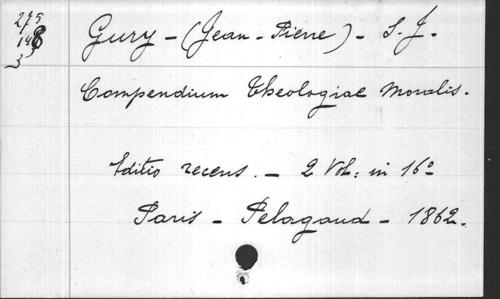 275
148
3
Gury - (Jean - Pierre) - S. J.
Compendium Theologiae Moralis.
Editio recens. - 2 Vol: in 16º
Paris - Pelagaud - 1862.